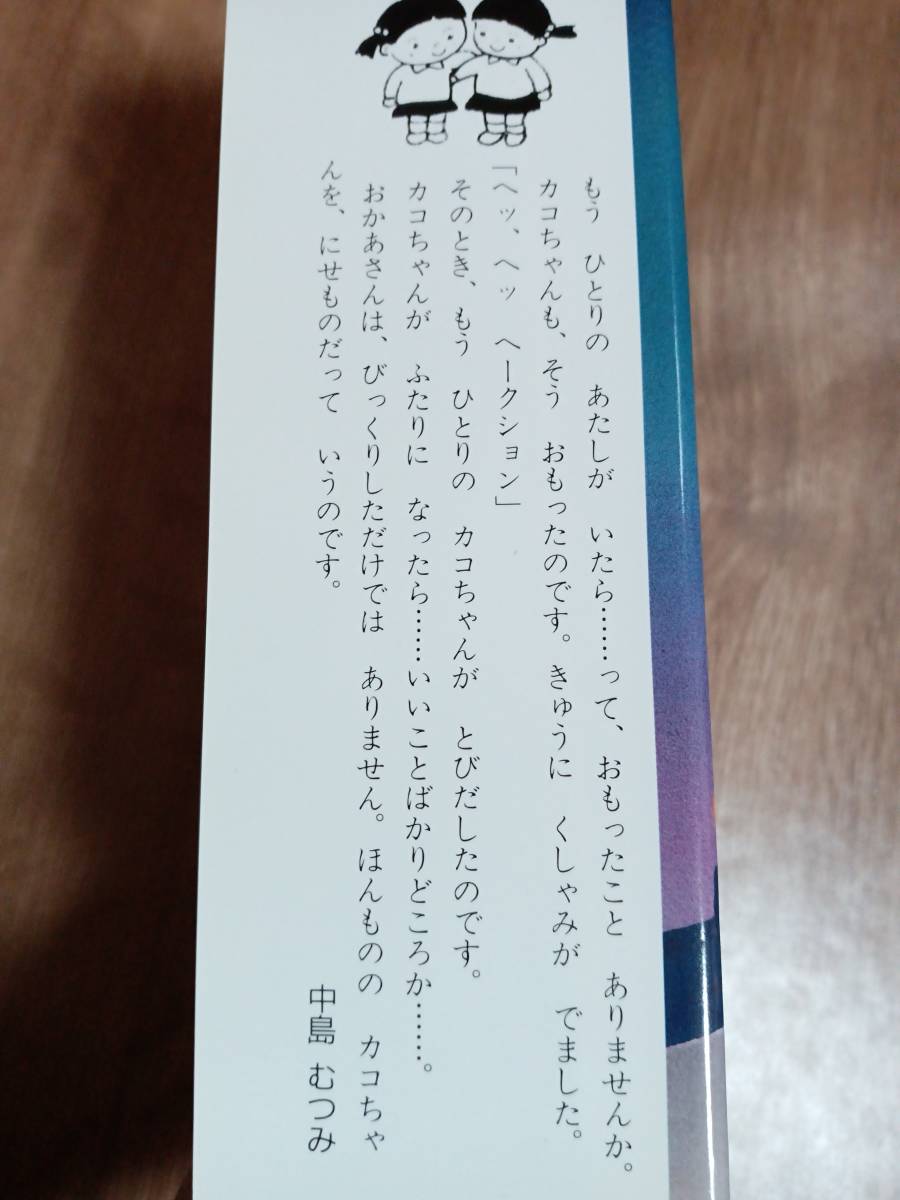 もう　ひとりの　あたしが　いたら……って、おもったこと　ありませんか。
カコちゃんも、そう　おもったのです。きゅうに　くしゃみが　でました。
「ヘッ、ヘッ　ヘークション」
そのとき、もう　ひとりの　カコちゃんが　とびだしたのです。
カコちゃんが　ふたりに　なったら……いいことばかりどころか……。
おかあさんは、びっくりしただけでは　ありません。ほんものの　カコちゃ
んを、にせものだって　いうのです。
中島　むつみ